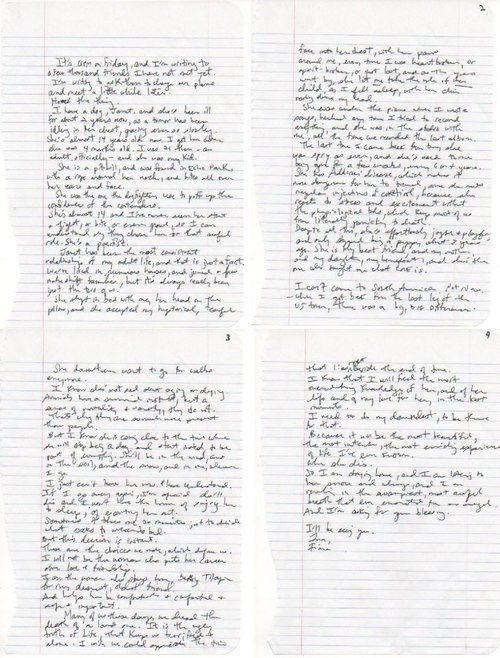 It's 6pm on Friday, and I'm writing to
a few thousand friends I have not met yet.
I'm writing to ask them to change our plans
and meet a little while later.
Here's the thing.
I have a dog, Janet, and she's been ill
for about 2 years now, as a tumor has been
idling in her chest, growing ever so slowly.
She's almost 14 years old now. I got her when
she was 4 months old. I was 21 then - an
adult, officially - and she was my kid.
She is a pitbull, and was found in Echo Park,
with a rope around her neck, and bites all over
her ears and face.
She was the one the dogfighters use to puff up the
confidence of the contenders.
She's almost 14 and I've never seen her start
a fight, or bite, or even growl, so I can
understand why they chose her for that awful
role. She's a pacifist.
Janet has been the most consistent
relationship of my adult life, and that is just a fact.
We've lived in numerous houses, and joined a few
makeshift families, but it's always really been
just the two of us.
She slept in bed with me, her head on the
pillow, and she accepted my hysterical, tearful
2
face into her chest, with her paws
around me, every time I was heartbroken, or
spirit-broken, or just lost, and as the years
went by, she let me take the role of her
child, as I fell asleep, with her chin
resting above my head.
She was under the piano when I wrote
songs, barked any time I tried to record
anything, and she was in the studio with
me, all the time we recorded the last album.
The last time I came back from tour, she
was spry as ever, and she's used to me
being gone for a few weeks, every 6 or 7 years.
She has Addison's Disease, which makes it
more dangerous for her to travel, since she needs
regular injections of Cortisol, because she
reacts to stress and excitement without
the physiological tools which keep most of us
from literally panicking to death.
Despite all this, she's effortlessly joyful & playful
and only stopped being a puppy about 3 years
ago. She is my best friend, and my mother,
and my daughter, my benefactor, and she's the
one who taught me what love is.
I can't come to South America. Not Now.
- When I got back from the last leg of the
US tour, there was a big, big difference.
3
She doesn't even want to go for walks
anymore.
I know she's not sad about aging or dying.
Animals have a survival instinct, but a
sense of mortality & vanity, they do not.
That's why they are so much more present
than people.
But I know she is coming close to the time where
she will stop being a dog, and start instead to be
part of everything. She'll be in the wind, and
in the soil, and the snow, and in me, wherever
I go.
I just can't leave her now. Please understand.
If I go away again, I'm afraid she'll
die and I won't have the honor of singing her
to sleep, of escorting her out.
Sometimes it takes me 20 minutes just to decide
what socks to wear to bed.
But this decision is instant.
These are the choices we make, which define us.
I will not be the woman who puts her career
ahead of love & friendship.
I am the woman who stays home, baking Tilapia
for my dearest, oldest friend.
And helps her be comfortable & comforted &
safe & important.
Many of us these days, we dread the
death of a loved one. It is the ugly
truth of Life, that keeps us terrified &
alone. I wish we could also appreciate the time
4
that lies right beside the end of time.
I know that I will feel the most
overwhelming knowledge of her, and of her
life and of my love for her, in the last
moments.
I need to do my damnedest, to be there
for that.
Because it will be the most beautiful,
the most intense, the most enriching experience
of life I've ever known.
When she dies.
So I am staying home, and I am listening to
her snore and wheeze, and I am
reveling in the swampiest, most awful
breath that ever emanated from an angel.
And I'm asking for your blessing.
I'll be seeing you.
Love,
Fiona